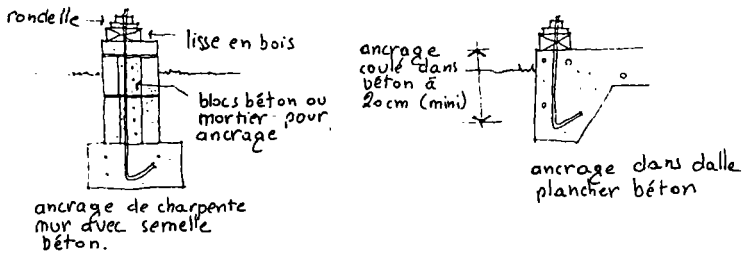 rondelle
lisse en bois
blocs béton ou
mortier pour
ancrage
ancrage de charpente
mur avec semelle
béton.
ancrage
coulé dans
béton à
20cm (mini)
ancrage dans dalle
plancher béton